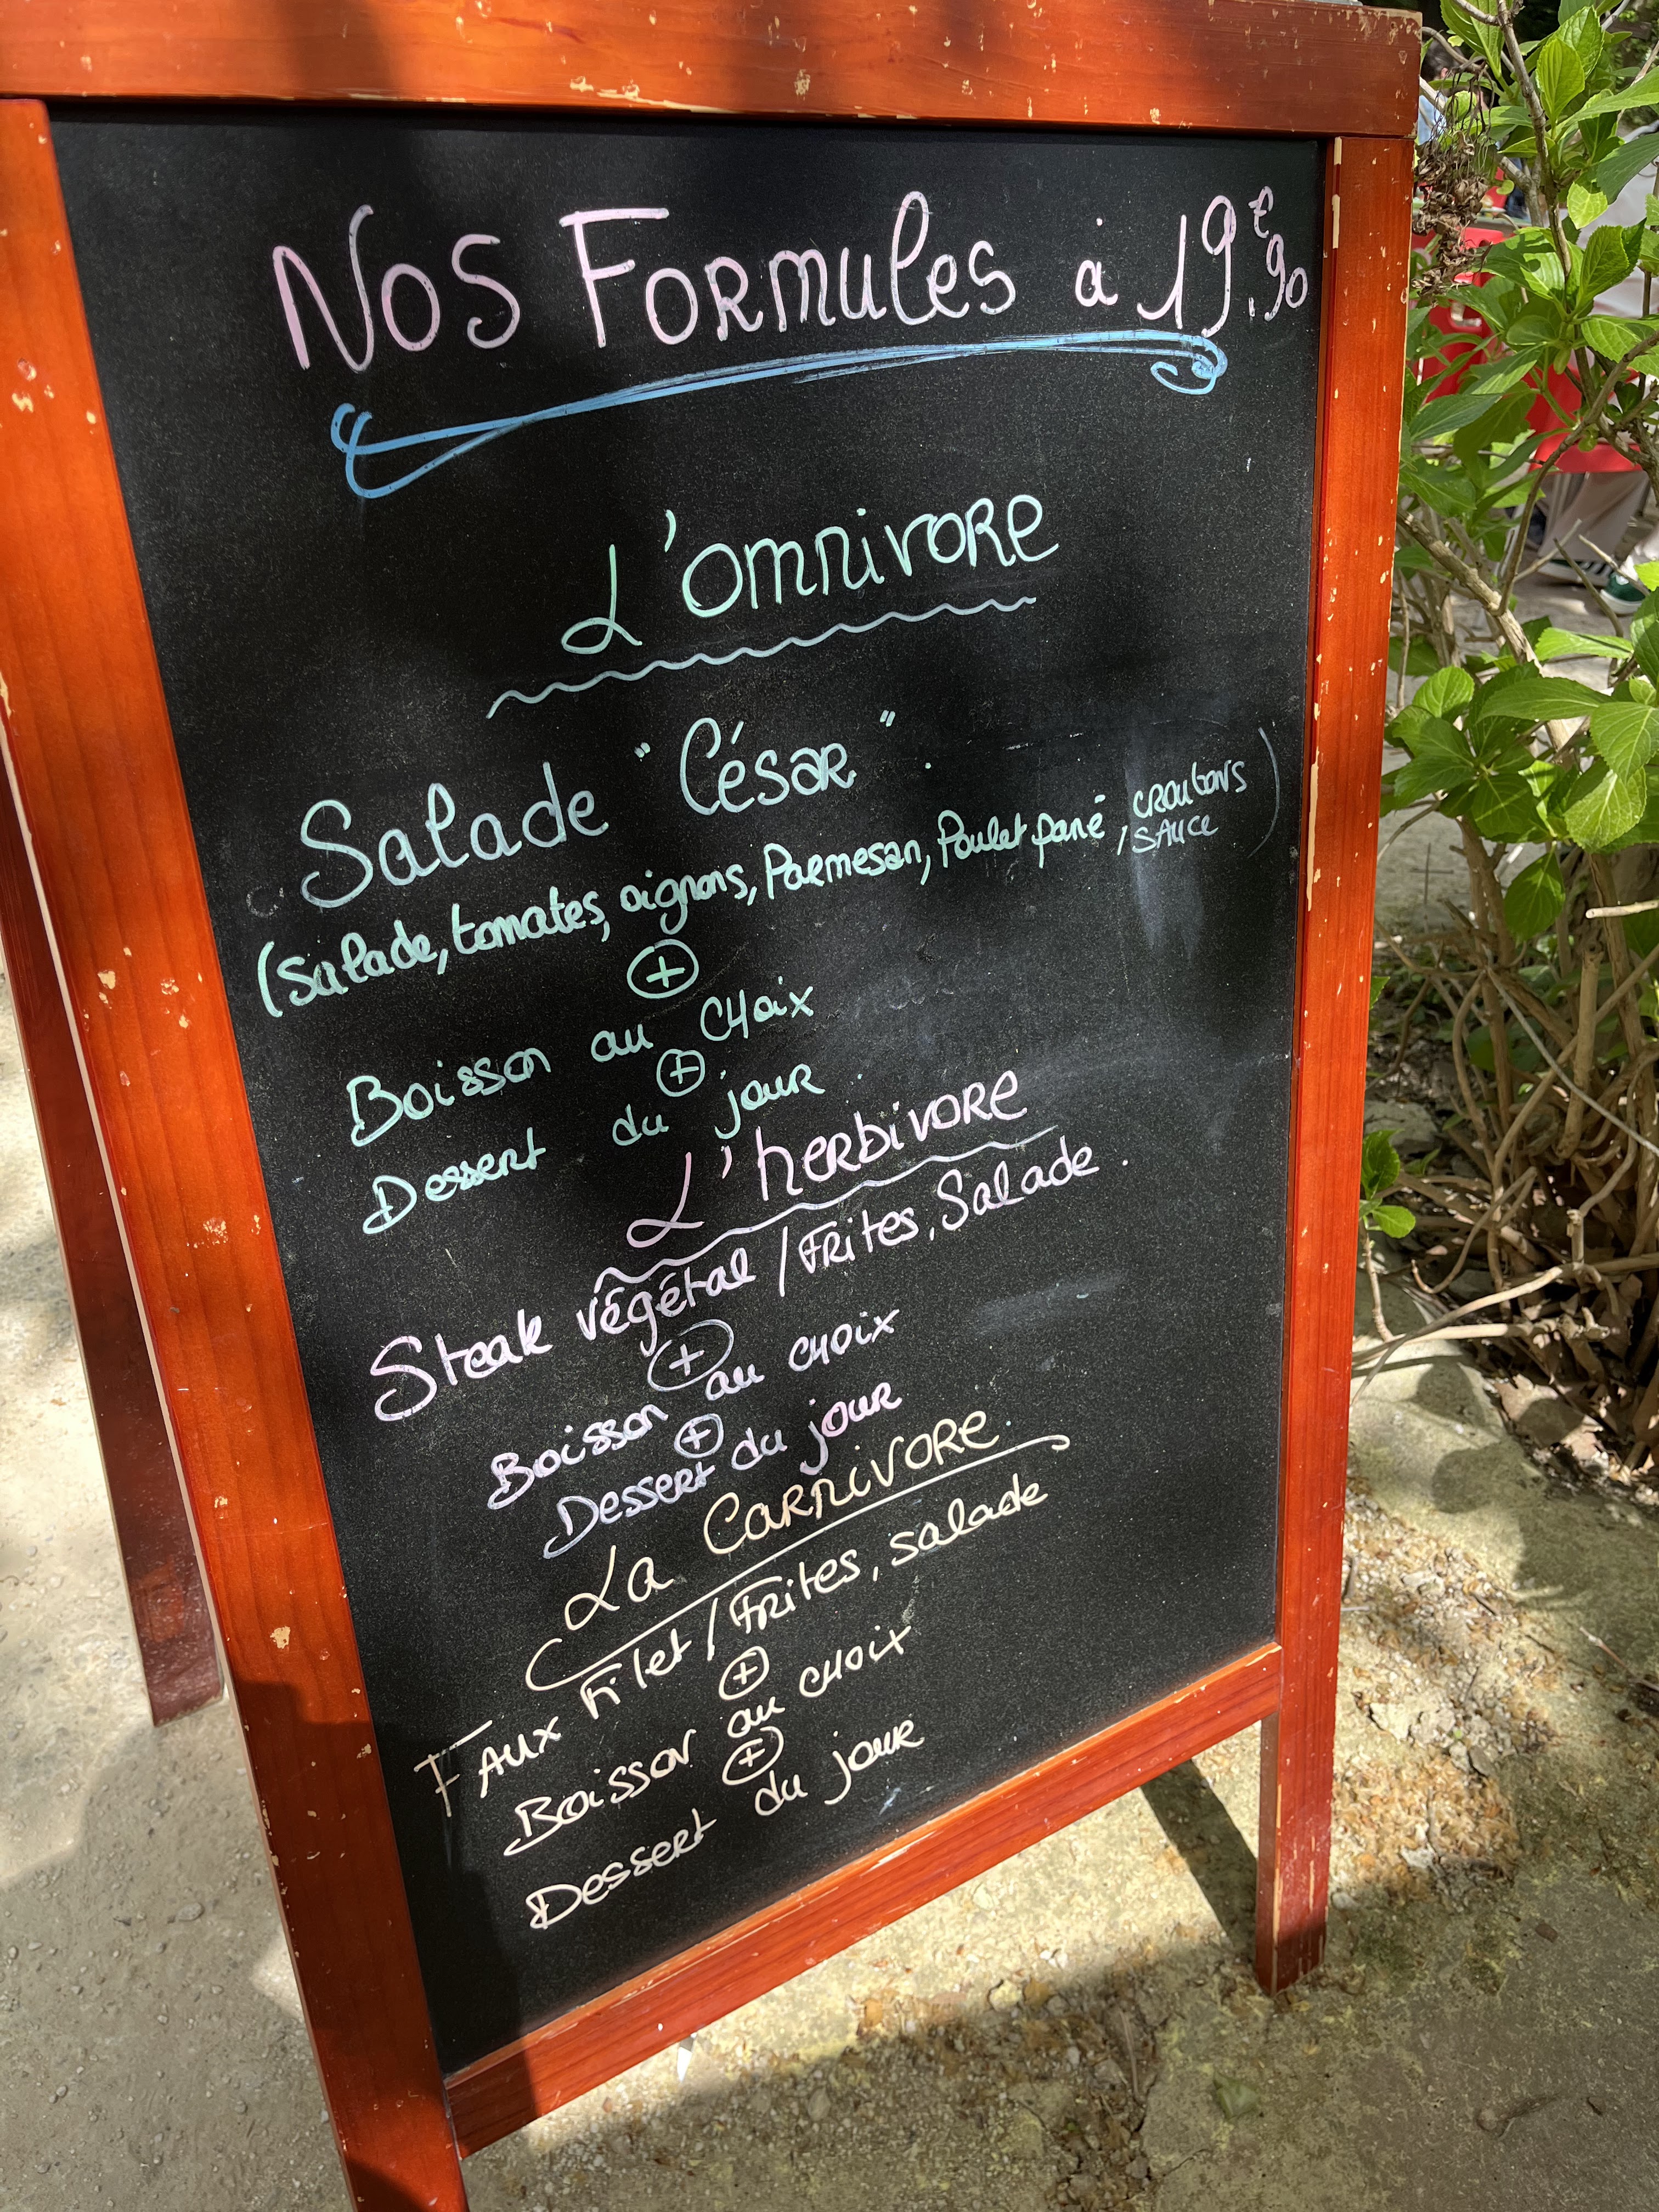 Nos Formules à 19€.90
L'omnivore
Salade "César".
(Salade, tomates, oignons, Parmesan, Poulet pané, croutons
, sauce)
+
Boisson au choix
+
Dessert du jour.
L'herbivore
Steak végétal / Frites, Salade.
+
Boisson au choix
+
Dessert du jour
La Carnivore.
Faux Filet / Frites, salade
+
Boisson au choix
+
Dessert du jour